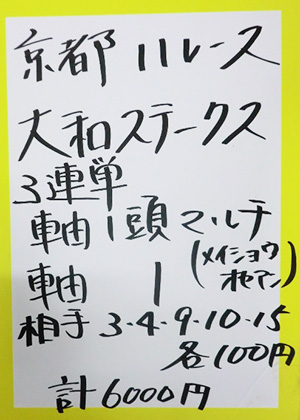 京都 11レース
大和ステークス
3連単
軸1頭マルチ
(メイショウ
オセアン)
軸 1
相手 3・4・9・10・15
各100円
計6000円